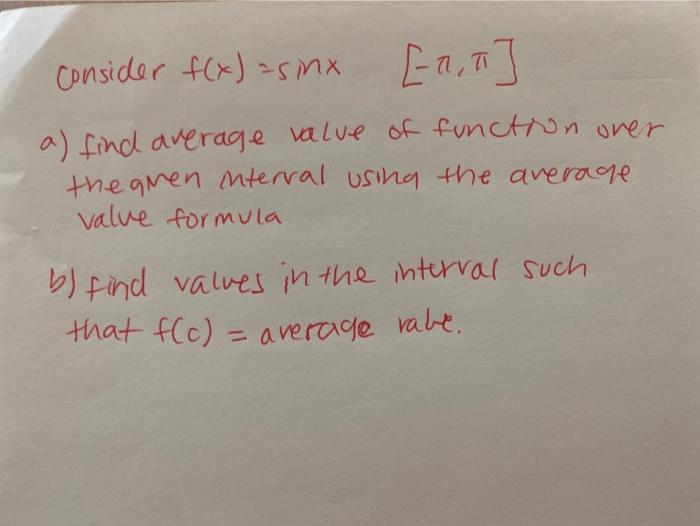 consider f(x) = sinx [-π, π]
a) find average value of function over
the given interval using the average
value formula
b) find values in the interval such
that f(c) = average value.